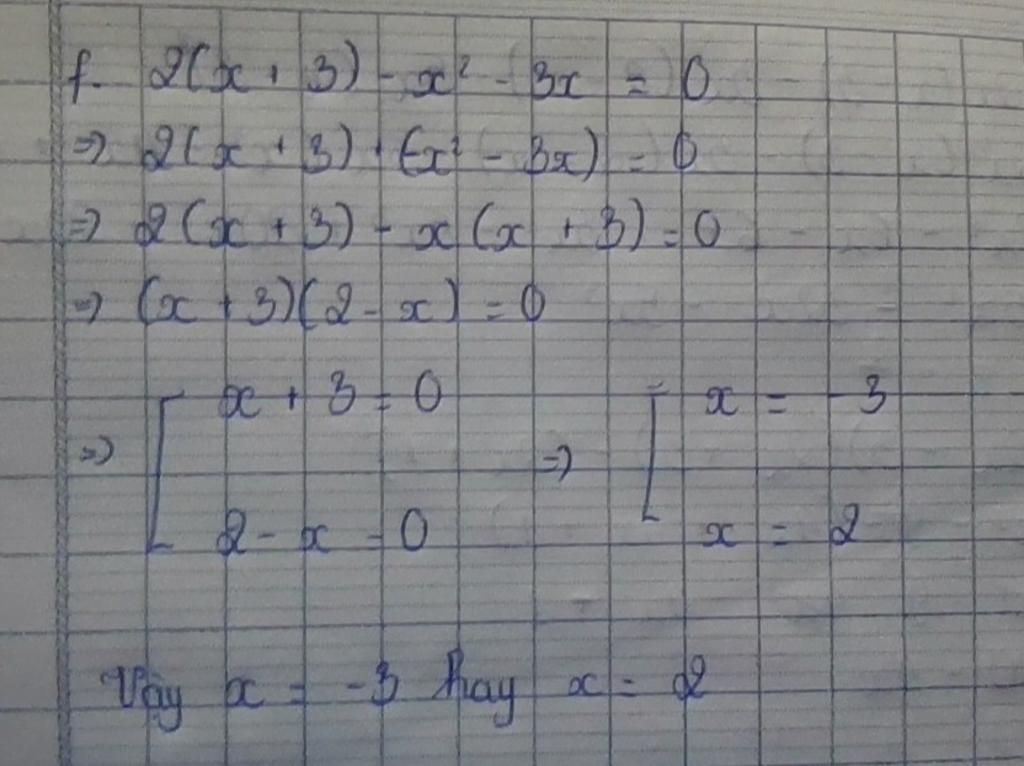 f. 2(x + 3) - x² - 3x = 0
=> 2(x + 3) + (-x² - 3x) = 0
=> 2(x + 3) - x(x + 3) = 0
=> (x + 3)(2 - x) = 0
=> [ x + 3 = 0 => [ x = -3
2 - x = 0 x = 2
Vậy x = -3 hay x = 2